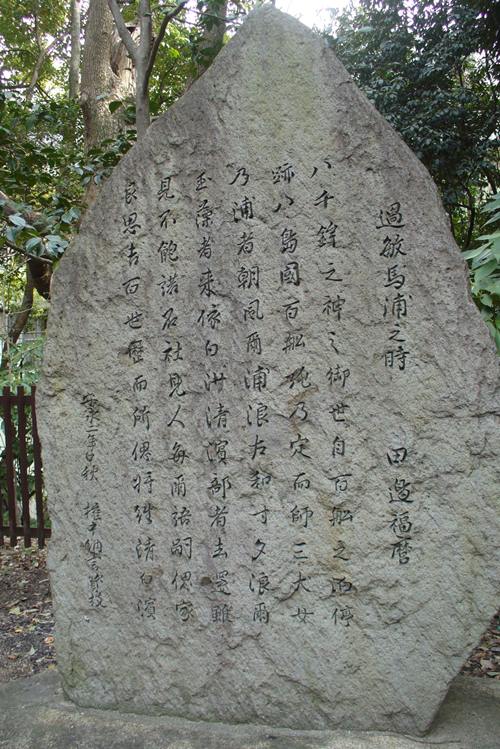 過敏馬浦之時 田邊福麿
八千鉾之神之御世自百舩之泊停
跡八嶋國百舩純乃定而師三犬女
乃浦者朝風爾浦浪左和寸夕浪爾
玉藻者来依白沙清濱部者去還雖
見不飽諾石社見人毎爾語嗣偲家
良思吉百世歴而所偲将往清白濱
二年中秋 権中納言